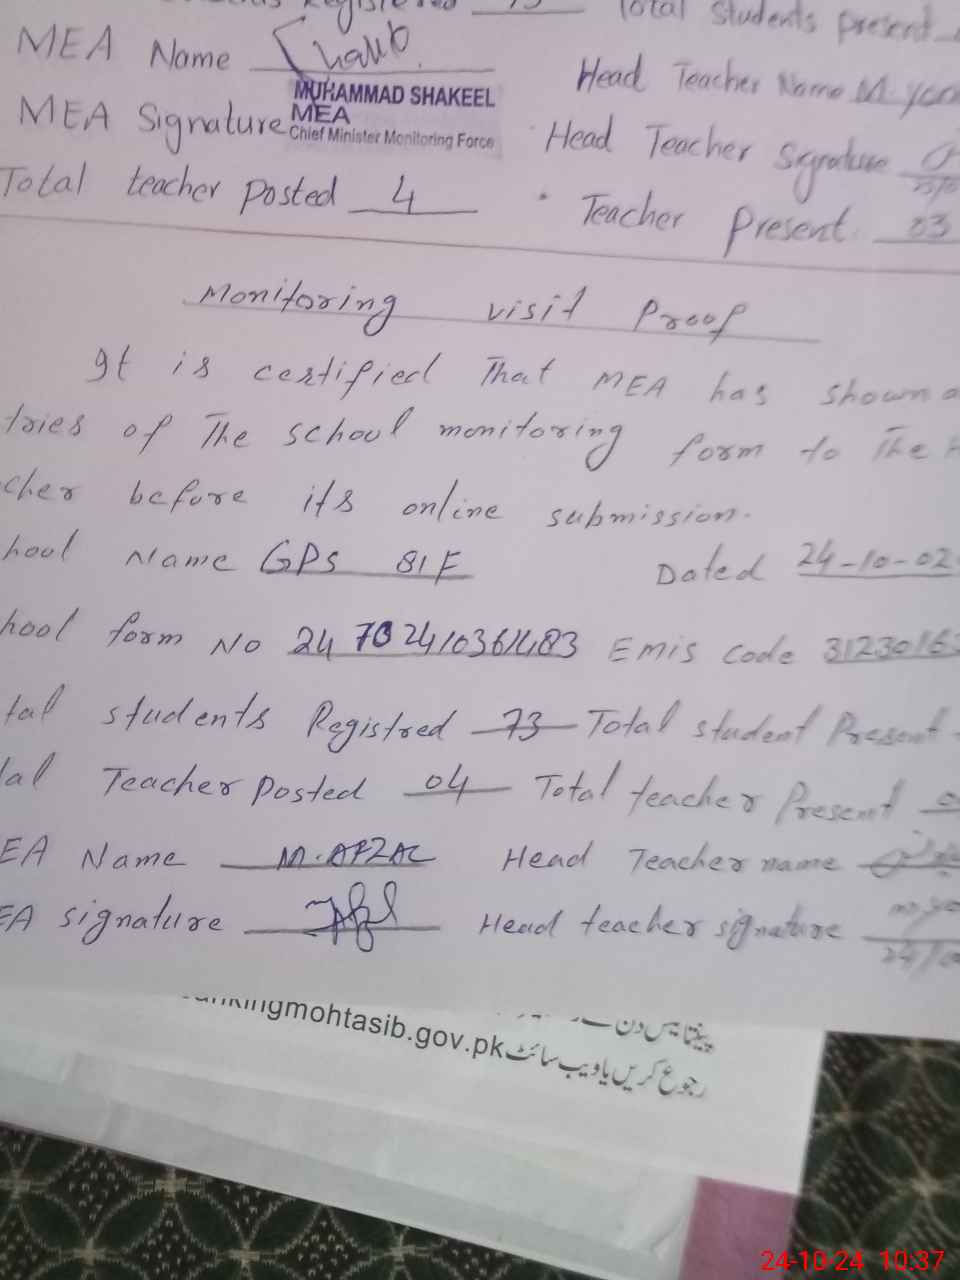 Total students present
MEA Name
Head Teacher Name M. You
MUHAMMAD SHAKEEL
MEA
Chief Minister Monitoring Force
MEA Signature
Head Teacher Signature
Total teacher posted 4
Teacher Present. 03
Monitoring visit Proof
It is certified That MEA has shown
tries of The school monitoring form to The
cher before its online submission.
hool Name GPS 81F Dated 24-10-02
hool form No Emis code 3123016
tal students Registred 73 Total student Present
tal Teacher Posted 04 Total teacher Present
EA Name M. AFZAL Head Teacher name
EA signature Head teacher signature
nkingmohtasib.gov.pk
رجوع کریں یا ویب سائٹ
24-10-24 10:37